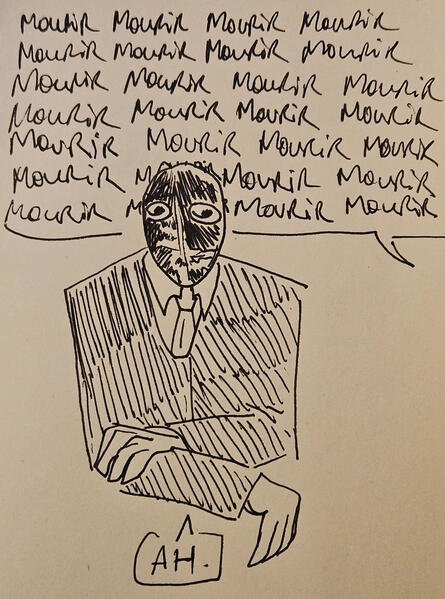 MouRiR MouRiR MouRiR MouRiR
MouRiR MouRiR MouRiR MouRiR
MouRiR MouRiR MouRiR MouRiR
MouRiR MouRiR MouRiR MouRiR
MouRiR MouRiR MouRiR MouRiR
MouRiR MouRiR MouRiR
MouRiR MouRiR MouRiR
AH.